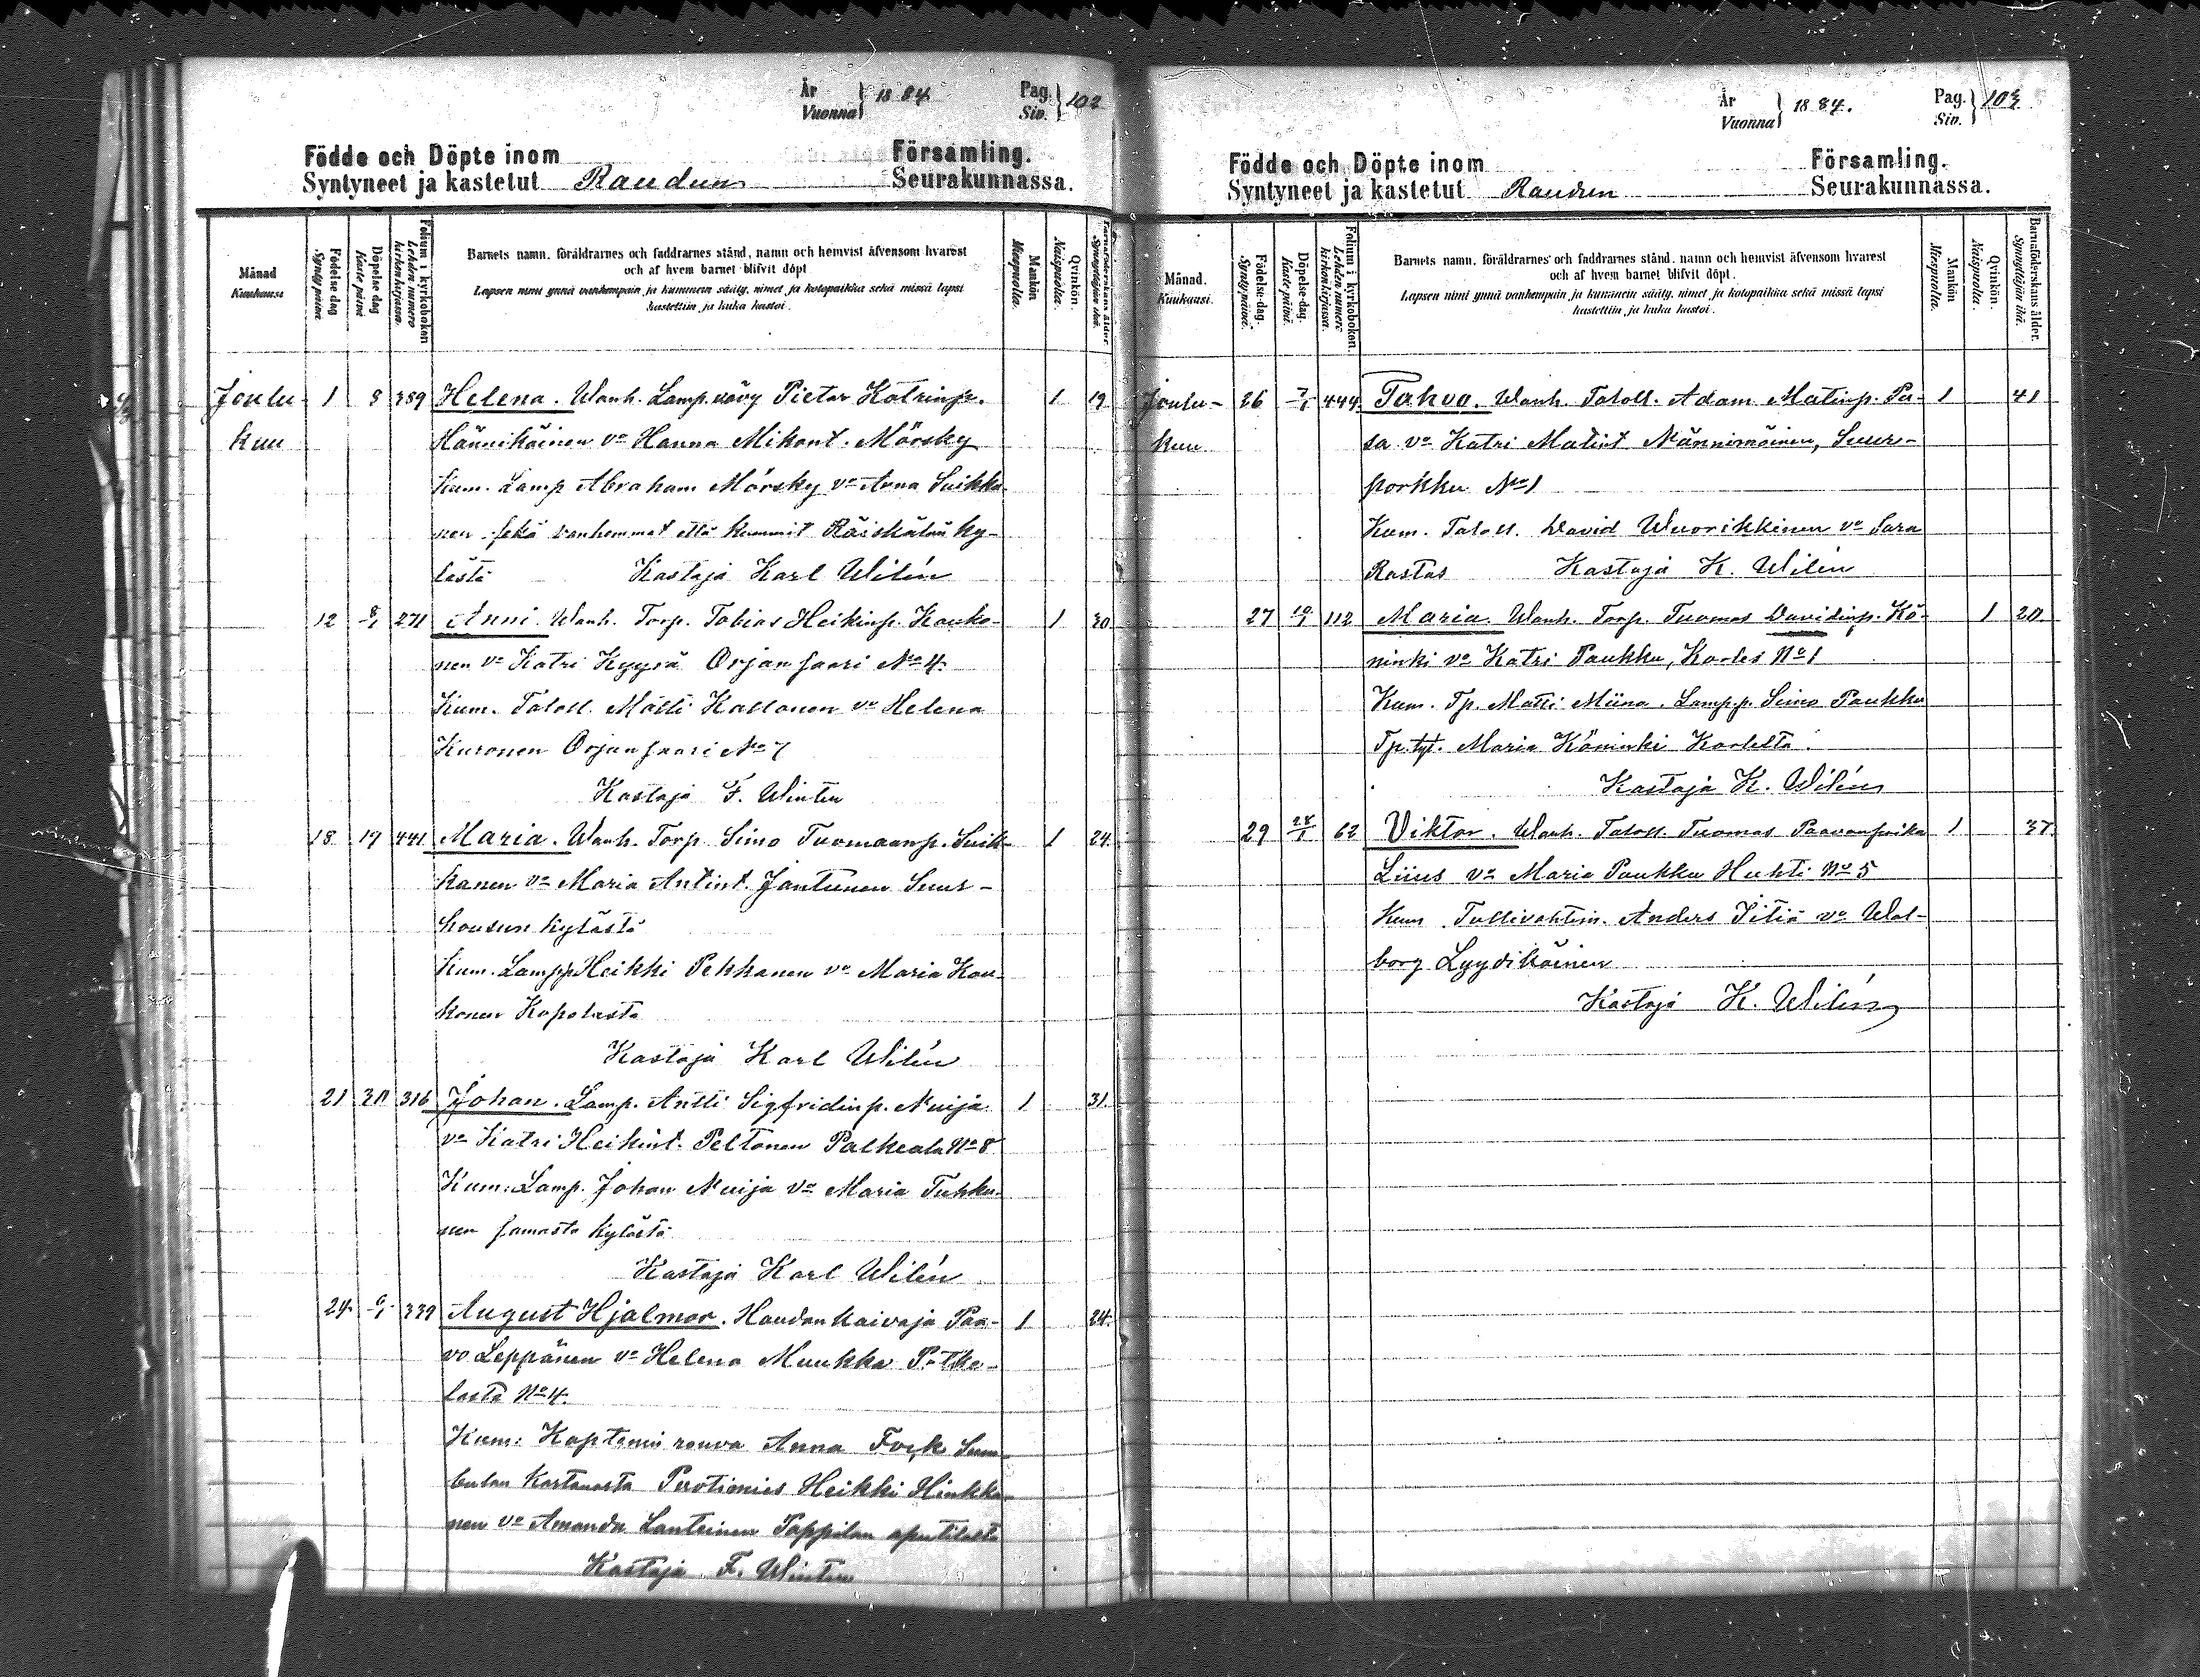 År
Vuonna } 1884
Pag.
Siv. } 102
Födde och Döpte inom Församling.
Syntyneet ja kastetut Raudun Seurakunnassa.
Månad
Kuukausi
Födelse dag
Synty päivä
Döpelse dag
Kaste päivä
Folium i kyrkoboken
Lehden numero kirkonkirjassa.
Barnets namn, föräldrarnes och faddrarnes stånd, namn och hemvist äfvensom hvarest
och af hvem barnet blifvit döpt.
Lapsen nimi ynnä vanhempain ja kummein sääty, nimet ja kotopaikka sekä missä lapsi
kastettiin ja kuka kastoi.
Mankön
Miespuolta.
Qvinkön.
Naispuolta.
Barnaföderskans ålder.
Synnyttäjän ikä.
Joulu- 1 8 389 Helena. Wanh. Lamp. vävy Pietar Katrinp. 1 19
kuu Hännikäinen va Hanna Mikont. Mörsky
Kum. Lamp Abraham Mörsky va Anna Suikka-
nen sekä vanhemmat että kummit Räiskälän ky-
lästä Kastaja Karl Wilén
12 8/1 271 Anni. Wanh. Torp. Tobias Heikinp. Kauko- 1 30
nen va Katri Kyyrä Orjansaari No 4.
Kum. Taloll. Matti Kallonen va Helena
Kuronen Orjansaari No 7
Kastaja F. Winter
18 19 441 Maria. Wanh. Torp. Simo Tuomaanp. Suik- 1 24
kanen va Maria Antint. Jantunen Suur-
housun kylästä
Kum. Lampp. Heikki Pekkanen va Maria Kau-
konen Kopolasta
Kastaja Karl Wilén
21 30 316 Johan. Lamp. Antti Sigfridinp. Nuija 1 31
va Katri Heikint. Peltonen Palkeala No 8
Kum: Lamp. Johan Nuija va Maria Tuhku-
nen samasta kylästä
Kastaja Karl Wilén
24 6/1 339 August Hjalmar. Haudankaivaja Paa- 1 24
vo Leppänen va Helena Muukka
lasta No 4.
Kum: Kaptenin rouva Anna Fock Sum-
bulan Kartanosta Puotimies Heikki Hinkka-
nen va Amanda Lanteinen Pappilan
Kastaja F. Winter
År
Vuonna } 1884.
Pag.
Siv. } 103
Födde och Döpte inom Församling.
Syntyneet ja kastetut Raudun Seurakunnassa.
Månad.
Kuukausi.
Födelse-dag.
Synty-päivä.
Döpelse-dag.
Kaste päivä.
Folium i kyrkoboken.
Lehden numero kirkonkirjassa.
Barnets namn, föräldrarnes och faddrarnes stånd, namn och hemvist äfvensom hvarest
och af hvem barnet blifvit döpt.
Lapsen nimi ynnä vanhempain ja kummein sääty, nimet ja kotopaikka sekä missä lapsi
kastettiin ja kuka kastoi.
Mankön
Miespuolta.
Qvinkön.
Naispuolta.
Barnaföderskans ålder.
Synyttäjän ikä.
Joulu- 26 7/1 444 Tahvo. Wanh. Taloll. Adam Matinp. Pu- 1 41
kuu sa va Katri Matint Männimäinen, Suur-
porkku No 1
Kum. Taloll. David Wuorikkinen va Sara
Rastas Kastaja K. Wilén
27 10/1 112 Maria. Wanh. Torp. Tuomas Davidinp. Kö- 1 20
ninki va Katri Paukku, Korles No 1
Kum. Tp. Matti Miina. Lamp.p. Simo Paukku
Tp. tyt. Maria Köninki Korlesta.
Kastaja K. Wilén
29 28/1 62 Viktor. Wanh. Taloll. Tuomas Paavonpoika 1 37
Liius va Maria Paukku Huhti No 5
Kum. Tullivahtim. Anders Jitiä va Wal-
borg Lyydikäinen
Kastaja K. Wilén